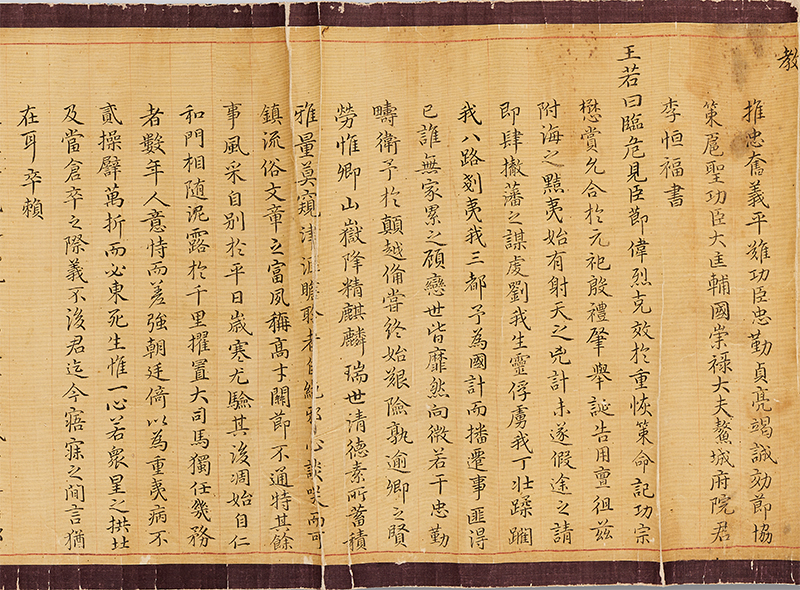 教
推忠奮義平難功臣忠勤貞亮竭誠効節協
策扈聖功臣大匡輔國崇祿大夫鰲城府院君
李恒福書
王若曰臨危見臣節偉烈克效於重恢策命記功宗
懋賞允合於元祀殷禮肇舉誕告用亶徂玆
附海之黠夷始有射天之兇計未遂假途之請
即肆撤藩之謀虔劉我生靈俘虜我丁壯蹂躪
我八路剗夷我三都予為國計而播遷事匪得
已誰無家累之顧戀世皆靡然向微若干忠勤
疇衛予於顛越備甞終始艱險孰逾卿之賢
勞惟卿山嶽降精麒麟瑞世清德素所蓄積
雅量莫窺津涯瞻聆者自絕邪心談笑而可
鎮流俗文章之富夙稱高才關節不通特其餘
事風采自別於平日歲寒尤驗其後凋始自仁
和門相随泥露於千里擢置大司馬獨任幾務
者數年人意恃而差強朝廷倚以為重夷病不
貳操譬萬折而必東死生惟一心若衆星之拱北
及當倉卒之際義不後君迄今寤寐之間言猶
在耳卒賴